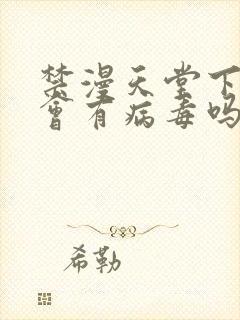 禁漫天堂下
會有病毒吗
希勒